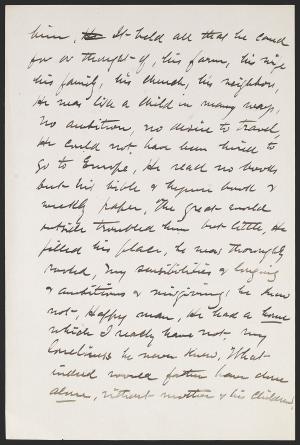 him, It held all that he cared
for or thought of, his farm, his wife
his family, his church, his neighbors,
He was like a child in many ways,
No ambition, no desire to travel,
He could not have been hired to
go to Europe, He read no books
but his bible & hymn book &
weekly paper, The great world
outside troubled him but little, He
filled his place, he was thoroughly
rooted, My sensibilities & longing
& ambitions & misgivings he knew
not, Happy man, He had a home
which I really have not. My
loneliness he never knew, What
indeed would father have done
alone, without mother & his children,